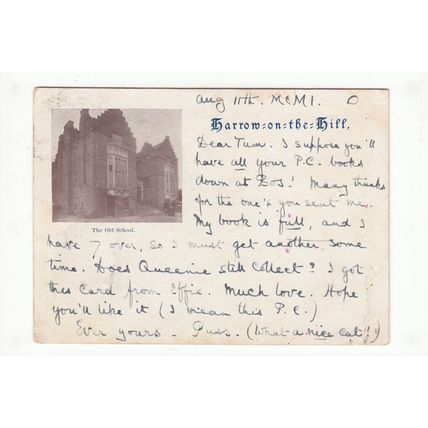 Aug 11th. MCM1. O
Harrow=on=the=Hill.
Dear Tum. I suppose you'll
have all your P.C. books
down at Bos! Many thanks
for the one's you sent me.
My book is full, and I
have 7 over, so I must get another some
time. Does Queenie still collect? I got
this card from Effie. Much love. Hope
you'll like it (I mean this P.C.)
Ever yours. Puss. (What a nice cat!!)
The Old School.